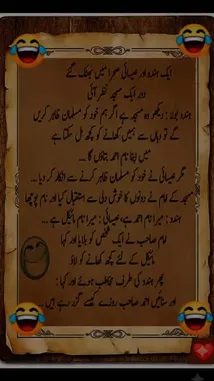 ایک ہندو اور عیسائی صحرا میں بھٹک گئے
دور ایک مسجد نظر آئی
ہندو بولا : دیکھو وہ مسجد ہے اگر ہم خود کو مسلمان ظاہر کریں
گے تو وہاں سے ہمیں کھانے کو کچھ مل سکتا ہے
میں اپنا نام احمد بتاؤں گا ...
مگر عیسائی نے خود کو مسلمان ظاہر کرنے سے انکار کر دیا ...
مسجد کے امام نے دونوں کا خوش دلی سے استقبال کیا اور نام پوچھا
ہندو : میرا نام احمد ہے، عیسائی : میرا نام مائیکل ہے ...
امام صاحب نے ایک شخص کو بلایا اور کہا
مائیکل کے لئے کچھ کھانے کو لاؤ
پھر ہندو کی طرف مخاطب ہوئے اور کہا :
اور سنائیں احمد صاحب روزے کیسے گذر رہے ہیں ...